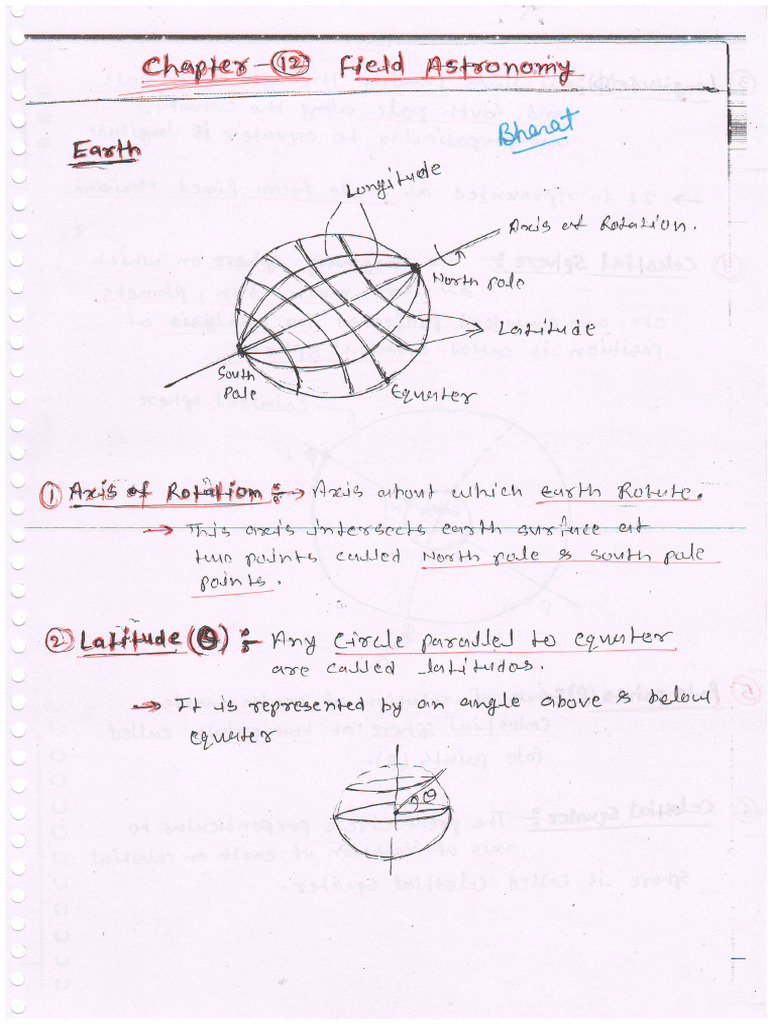 Chapter-12 Field Astronomy
Bharat
Earth
Longitude
Axis of Rotation.
North pole
Latitude
South
Pole
Equater
① Axis of Rotation :- → Axis about which earth Rotate.
→ This axis intersects earth surface at
two points called North pole & south pole
points.
② Latitude (θ) :- Any circle parallel to equater
are called latitudes.
→ It is represented by an angle above & below
equater
θ